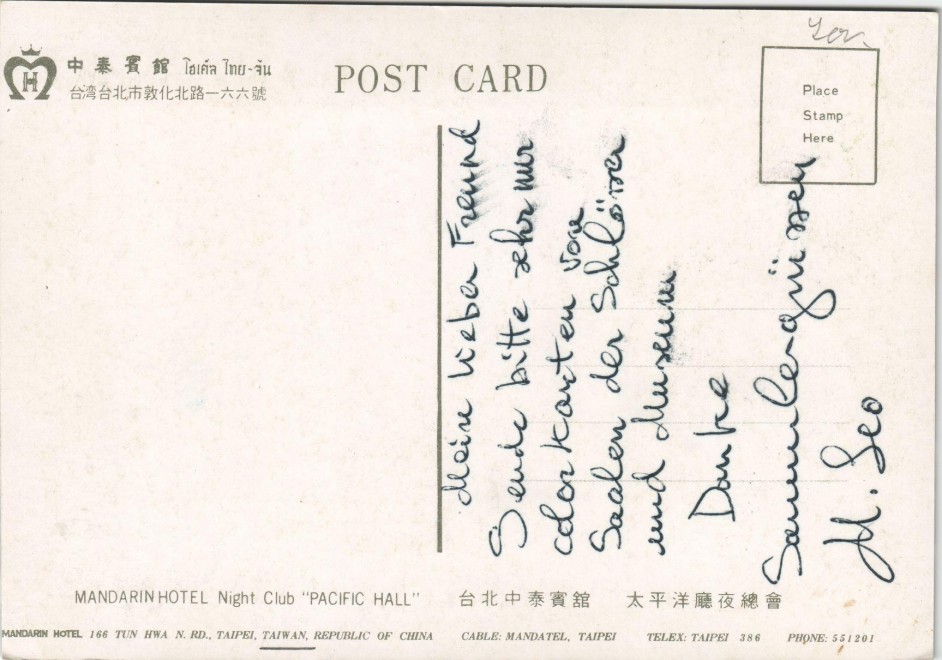 中泰賓館 โฮเต็ล ไทย-จีน
台湾台北市敦化北路一六六號
H
POST CARD
Place
Stamp
Here
Mein lieber Freund
Sende bitte sehr mir
color Karten von
Saalen der Schlösser
und Museum
Danke
Sammlergrüssen
M. Seo
MANDARIN HOTEL Night Club "PACIFIC HALL" 台北中泰賓館 太平洋廳夜總會
MANDARIN HOTEL 166 TUN HWA N. RD., TAIPEI, TAIWAN, REPUBLIC OF CHINA CABLE: MANDATEL, TAIPEI TELEX: TAIPEI 386 PHONE: 551201